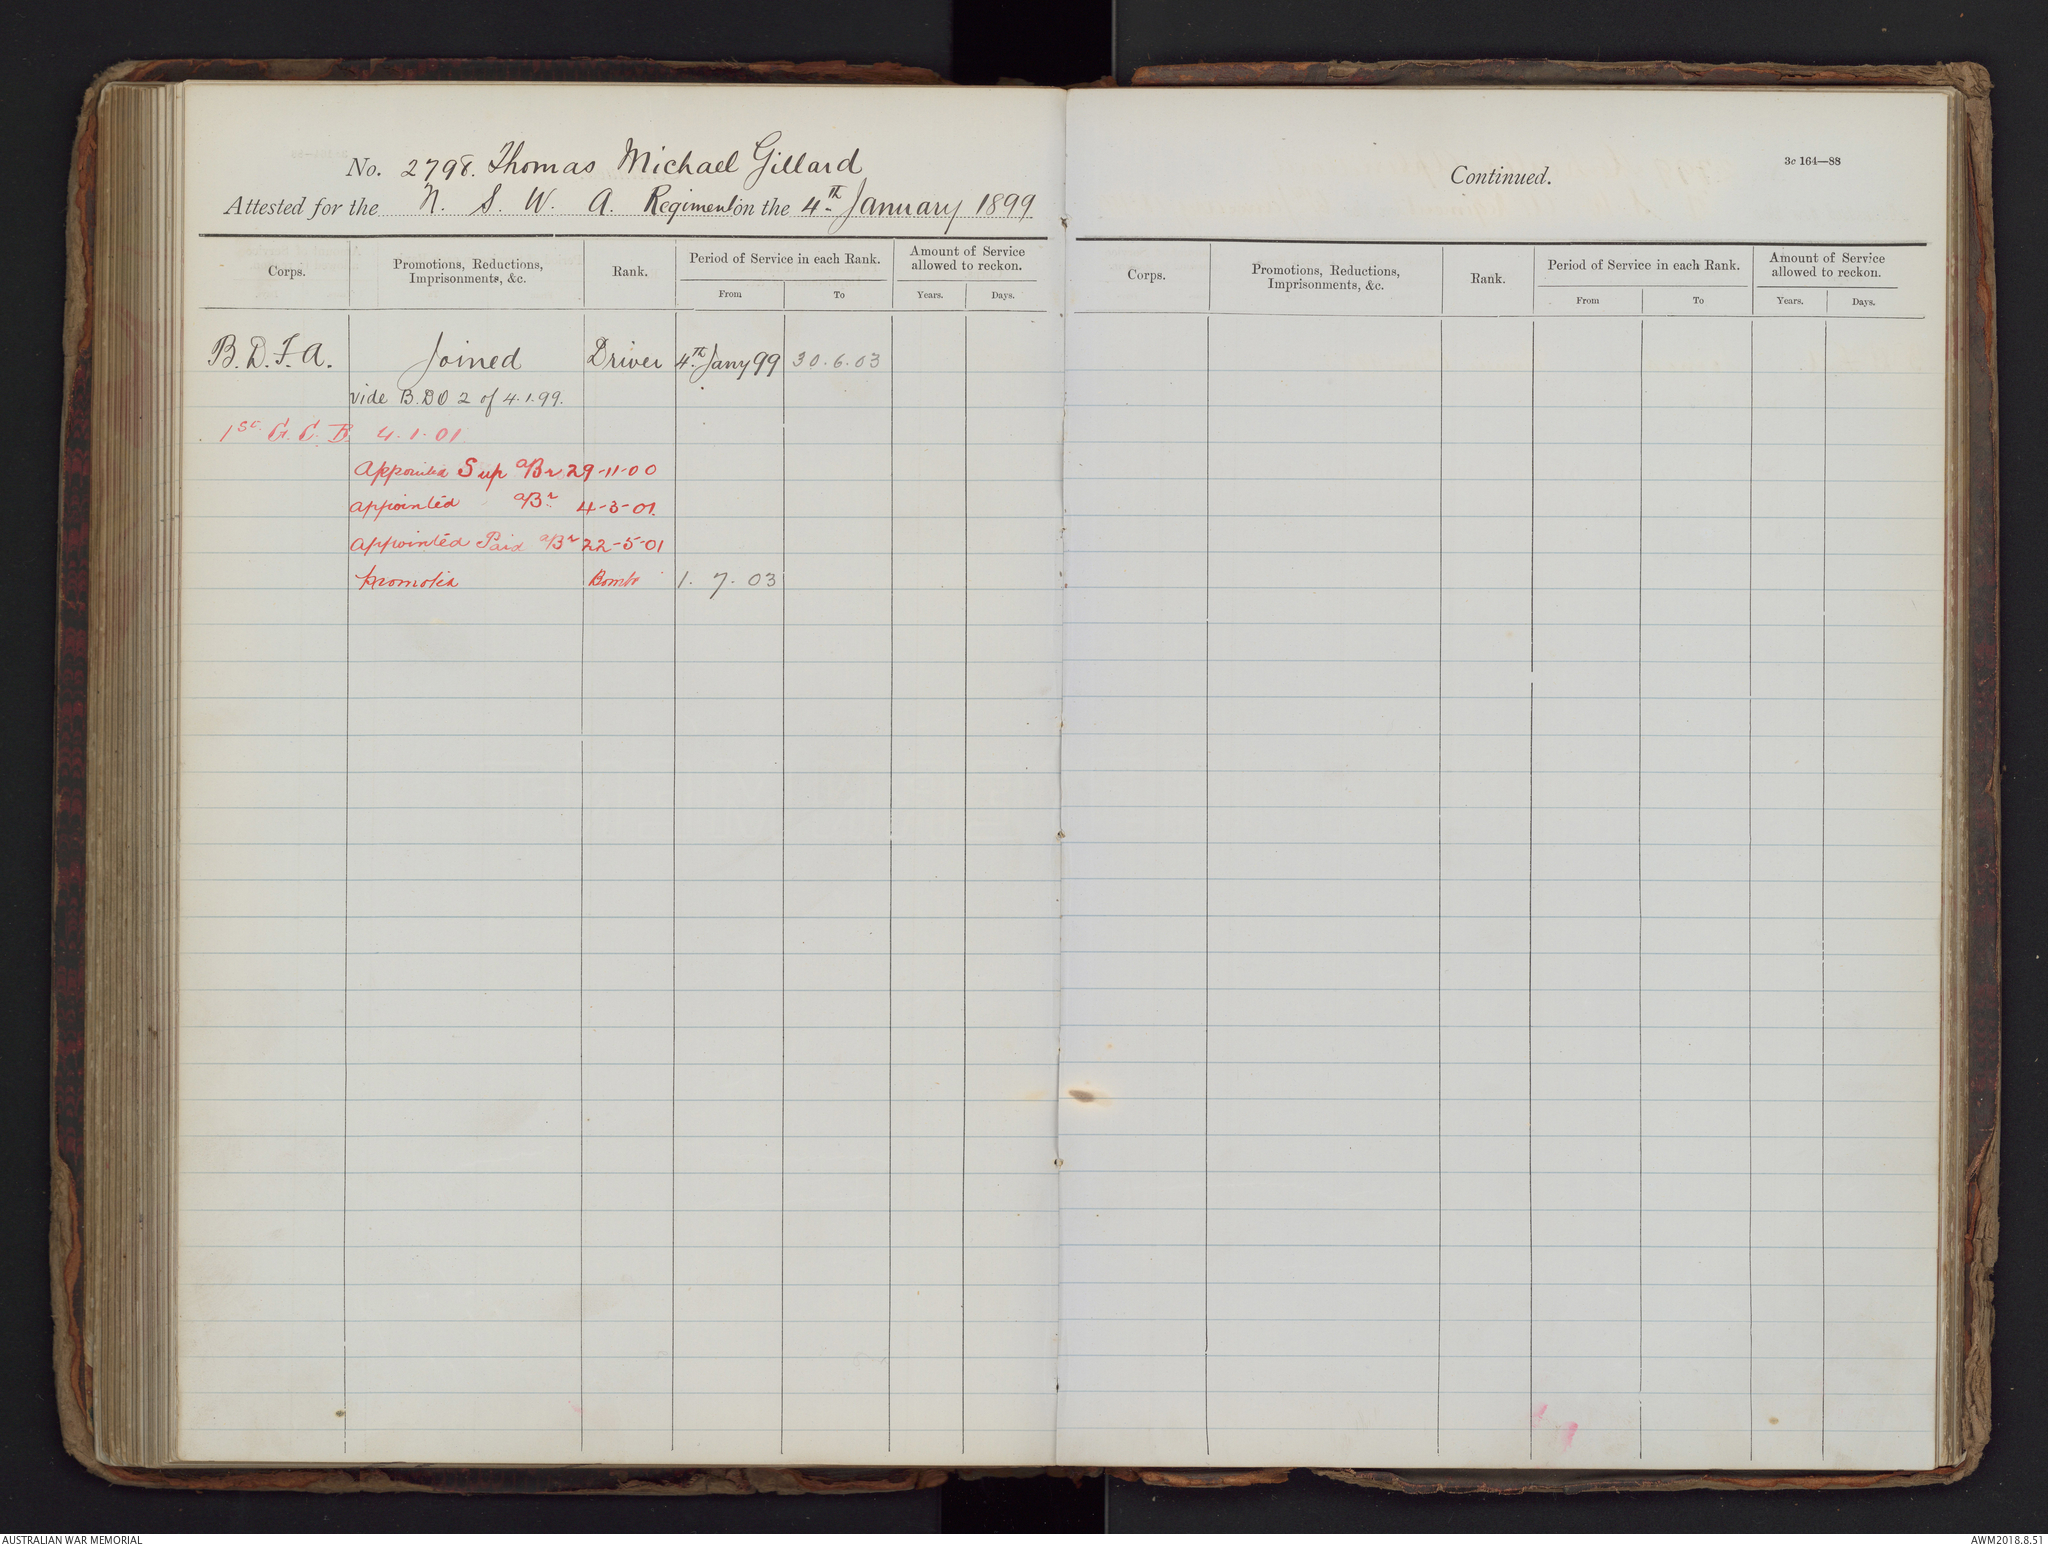 No. 2798. Thomas Michael Gillard
Attested for the N. S. W. A. Regiment on the 4th January 1899
Corps. Promotions, Reductions, Imprisonments, &c. Rank. Period of Service in each Rank. From To Amount of Service allowed to reckon. Years. Days.
B. D. F. A. Joined Driver 4th Jany 99 30. 6. 03
vide B.DO 2 of 4.1.99.
1st G. C. B. 4. 1. 01
Appointed Sup a/Br 29-11-00
appointed a/Br 4-3-01.
appointed Paid a/Br 22-5-01
promoted Bombr 1. 7. 03
3c 164—88
Continued.
Corps. Promotions, Reductions, Imprisonments, &c. Rank. Period of Service in each Rank. From To Amount of Service allowed to reckon. Years. Days.
AUSTRALIAN WAR MEMORIAL
AWM2018.8.51